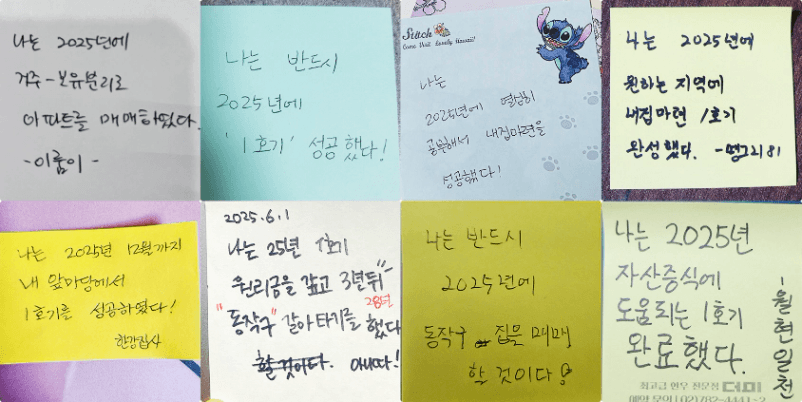 나는 2025년에
거주-보유분리로
아파트를 매매하였다.
-이룸이-
나는 반드시
2025년에
'1호기' 성공했다!
Stitch
Come Visit Lovely Hawaii!
나는
2025년에 열심히
공부해서 내집마련을
성공했다!
나는 2025년에
원하는 지역에
내집마련 1호기
완성했다. -맹그리81
나는 2025년 12월까지
내 앞마당에서
1호기를 성공하였다!
한강집사
2025.6.1
나는 25년 1호기
원리금을 갚고 3년뒤
28년
"동작구" 갈아타기를 했다
할 것이다. 아니따!
나는 반드시
2025년에
동작구 집을 매매
할 것이다!
나는 2025년
자산증식에
도움되는 1호기
완료했다.
-월현일천
최고급 한우 전문점 더미
예약 문의 (02)782-4441~2